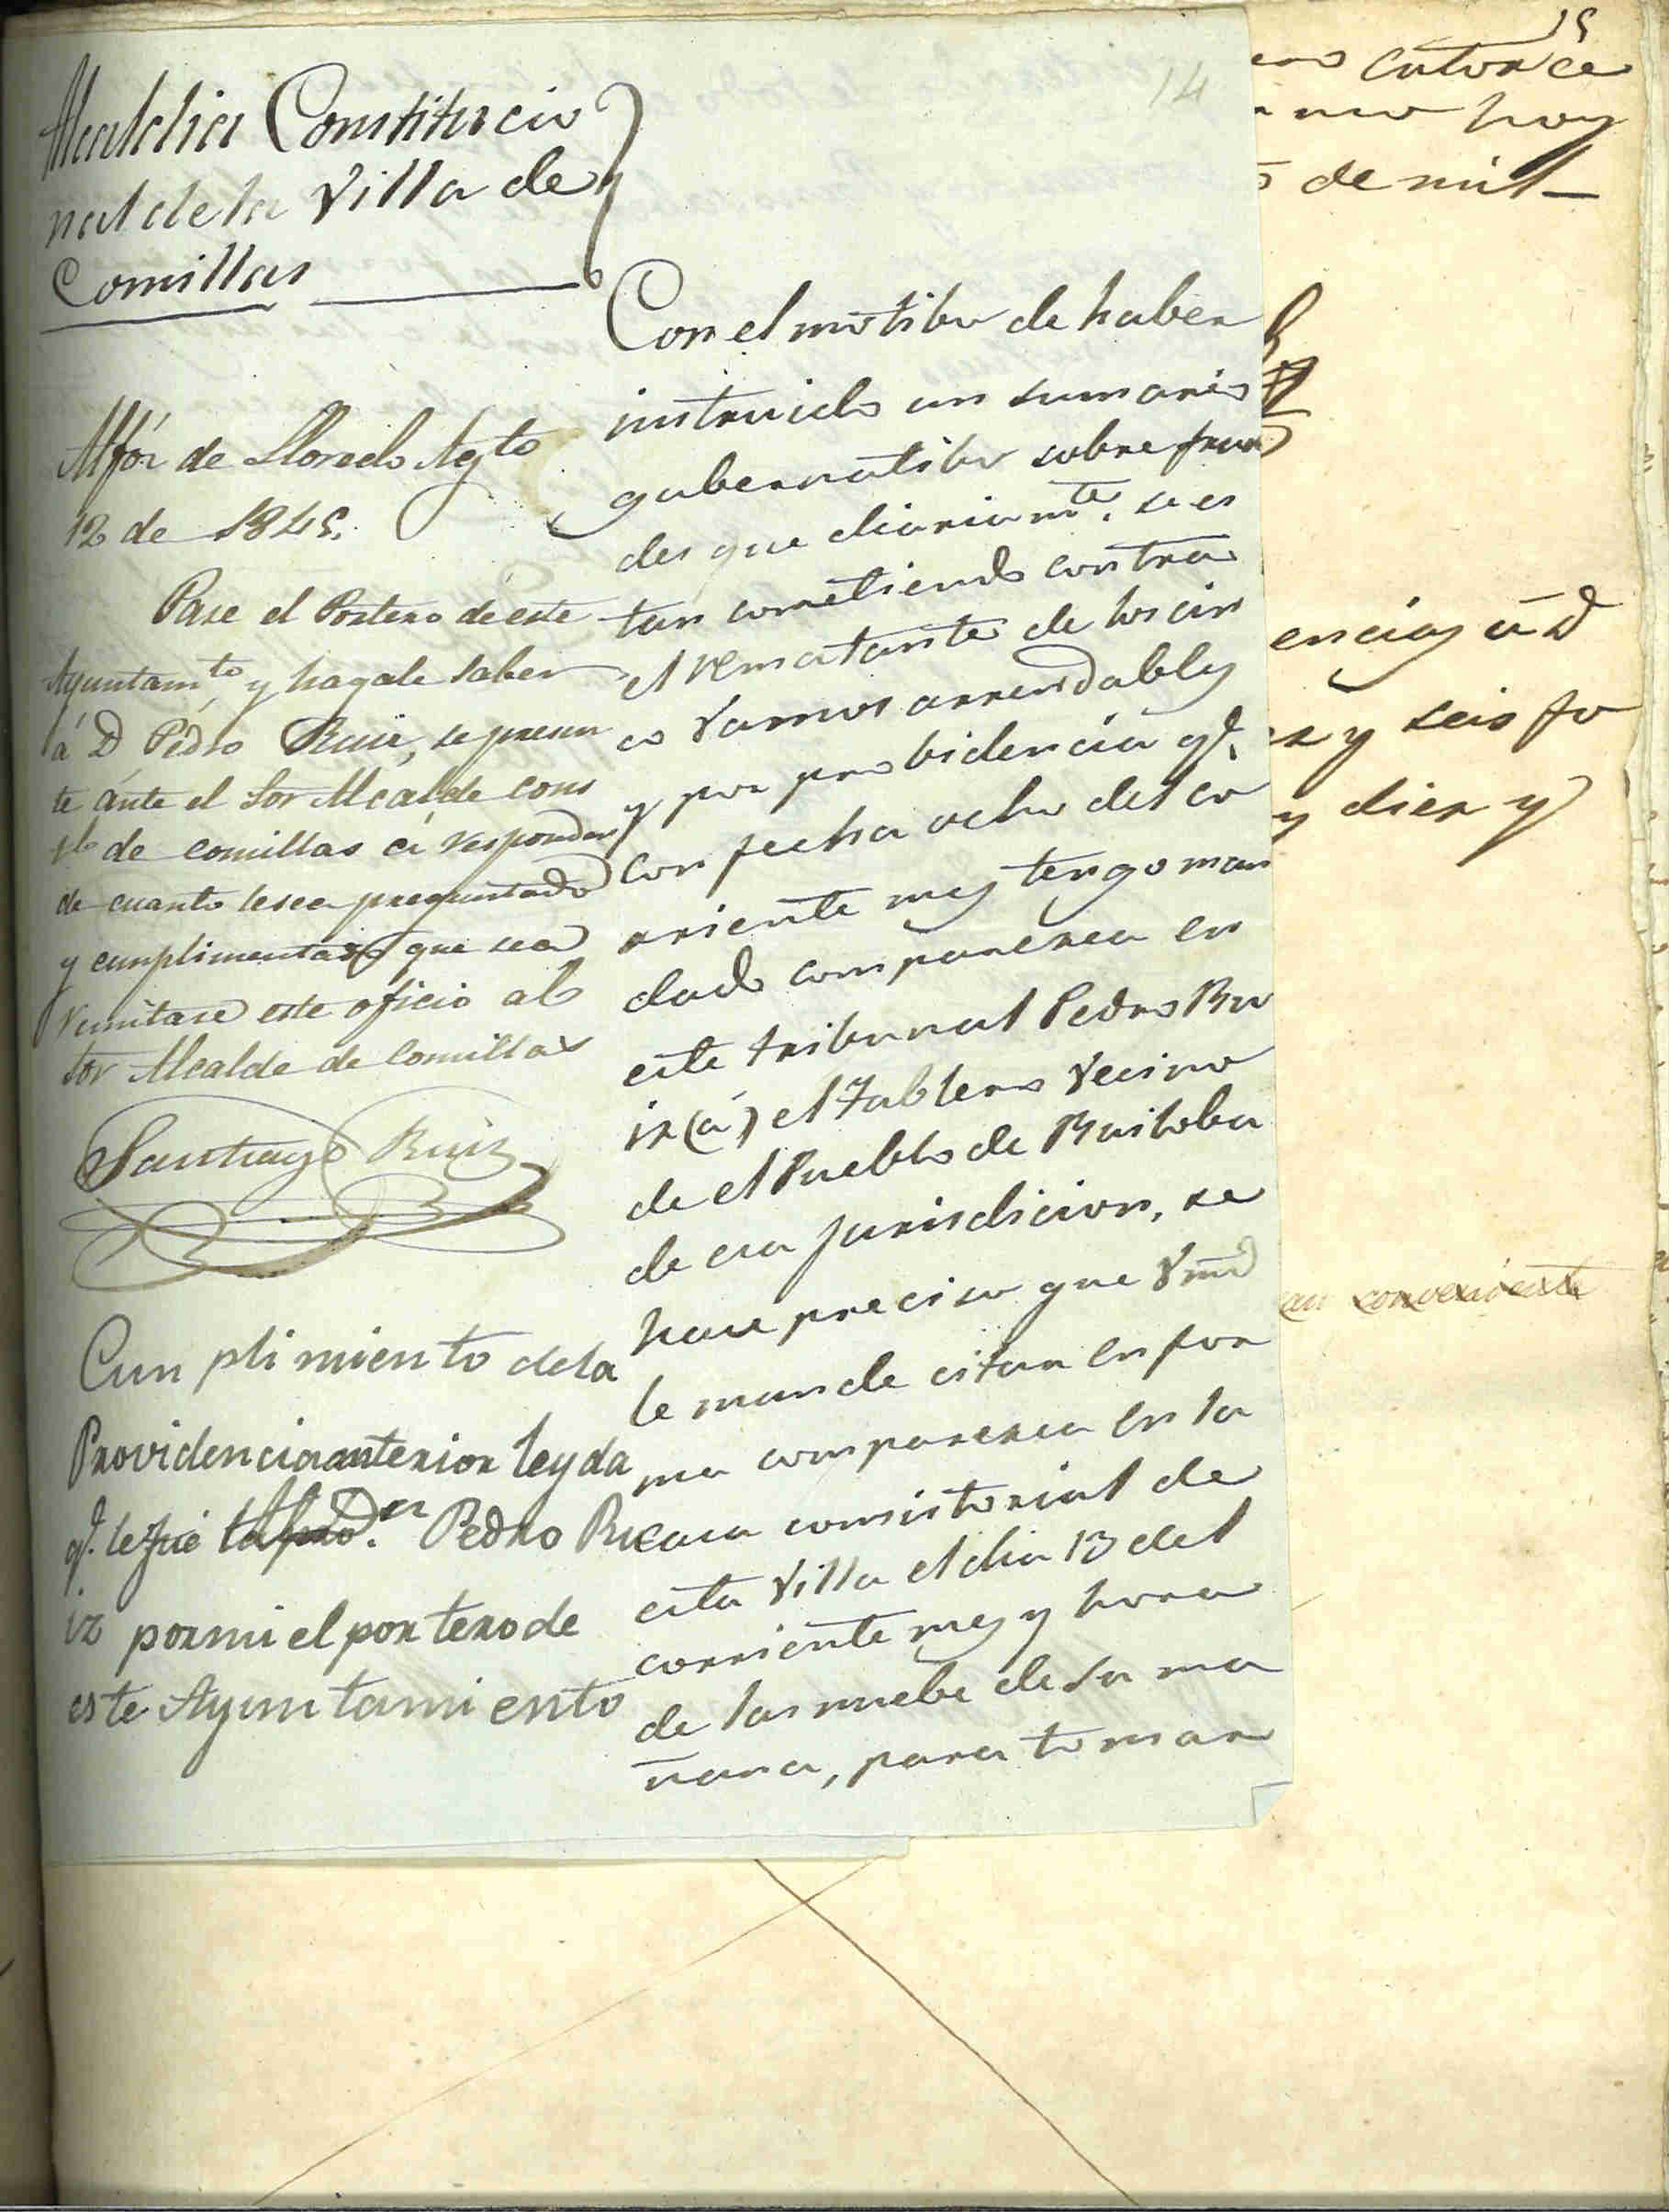 14
Alcaldia Constitucio
nal de la Villa de
Comillas
Con el motibo de haber
instruido un sumario
gubernatibo sobre frau
des que diariamte. se es
tan cometiendo contra
el rematante de los cin
co ramos arrendables
y por probidencia qe.
con fecha ocho del co
rriente mes tengo man
dado comparezca en
este tribunal Pedro Ru
iz (á) el Tablero vecino
de el Pueblo de Ruiloba
de esa jurisdicion, se
hace preciso que Vmd
le mande citar en for
ma comparezca en la
casa consistorial de
esta Villa el dia 13 del
corriente mes y hora
de las nuebe de su ma
ñana, para tomar
Alfoz de Lloredo Agto
12 de 1845.
Pase el Portero de este
Ayuntamto y hagale saber
á D Pédro Ruiz, se presen
te ánte el Sor Alcalde cons
de comillas á responder
de cuanto le sea preguntado
y cunplimentado que sea
remitase este oficio al
sor Alcalde de Comillas
Santiago Ruiz
Cunplimiento de la
Providencia anterior leyda
qe. le fué Pedro Ru
iz por mi el portero de
este Ayuntamiento
15
catorce
hoy
de mil
encias á D
y seis fo
y diez y
conveniente